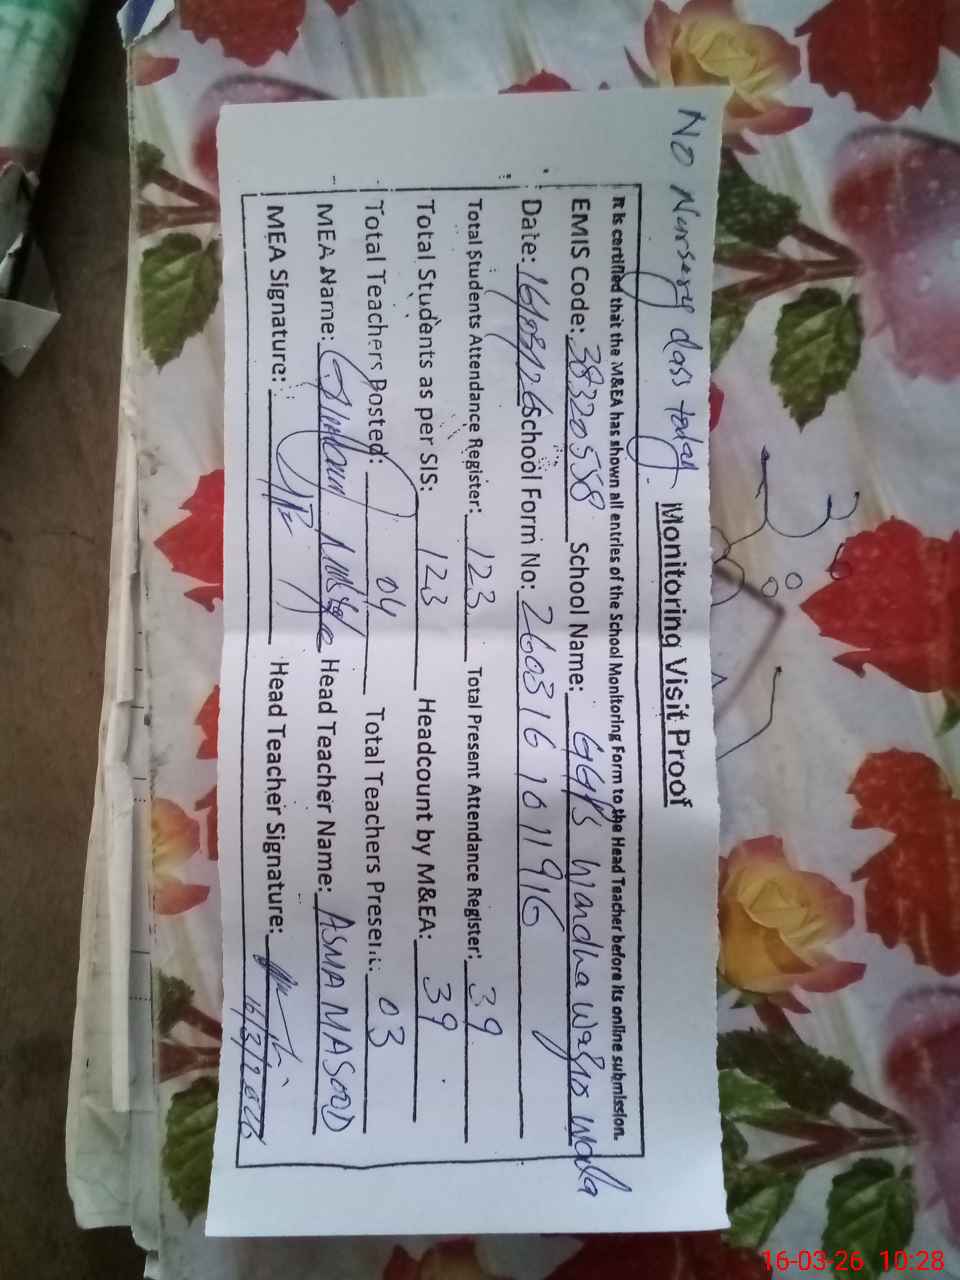 No Nursery class today.
Monitoring Visit Proof
It is certified that the M&EA has shown all entries of the School Monitoring Form to the Head Teacher before its online submission.
EMIS Code: 38320558 School Name: GGPS Wandha Wada
Date: 16/03/26 School Form No: 2603161011916
Total Students Attendance Register: 123 Total Present Attendance Register: 39
Total Students as per SIS: 123 Headcount by M&EA: 39
Total Teachers Posted: 04 Total Teachers Present: 03
MEA Name: Head Teacher Name: ASMA MASOOD
MEA Signature: Head Teacher Signature:
16/3/2026
16-03-26 10:28